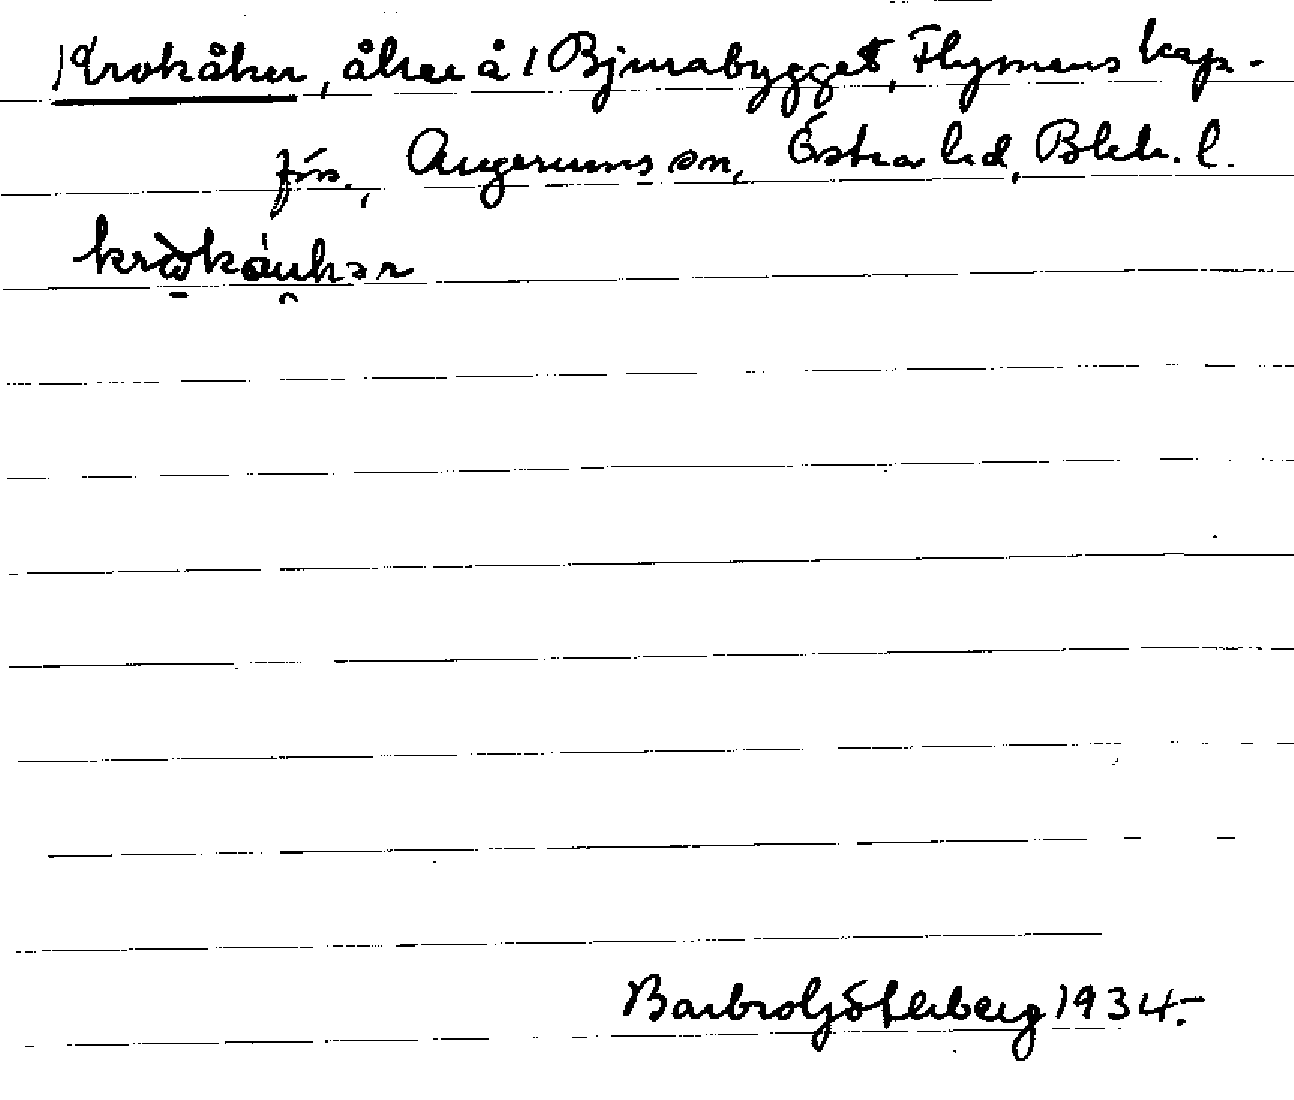 Krokåker, åker å 1 Bjurabygget, Flymens kap-
förs., Augerums sn, Östra hd, Blek. l.
Barbro Söderberg 1934.-